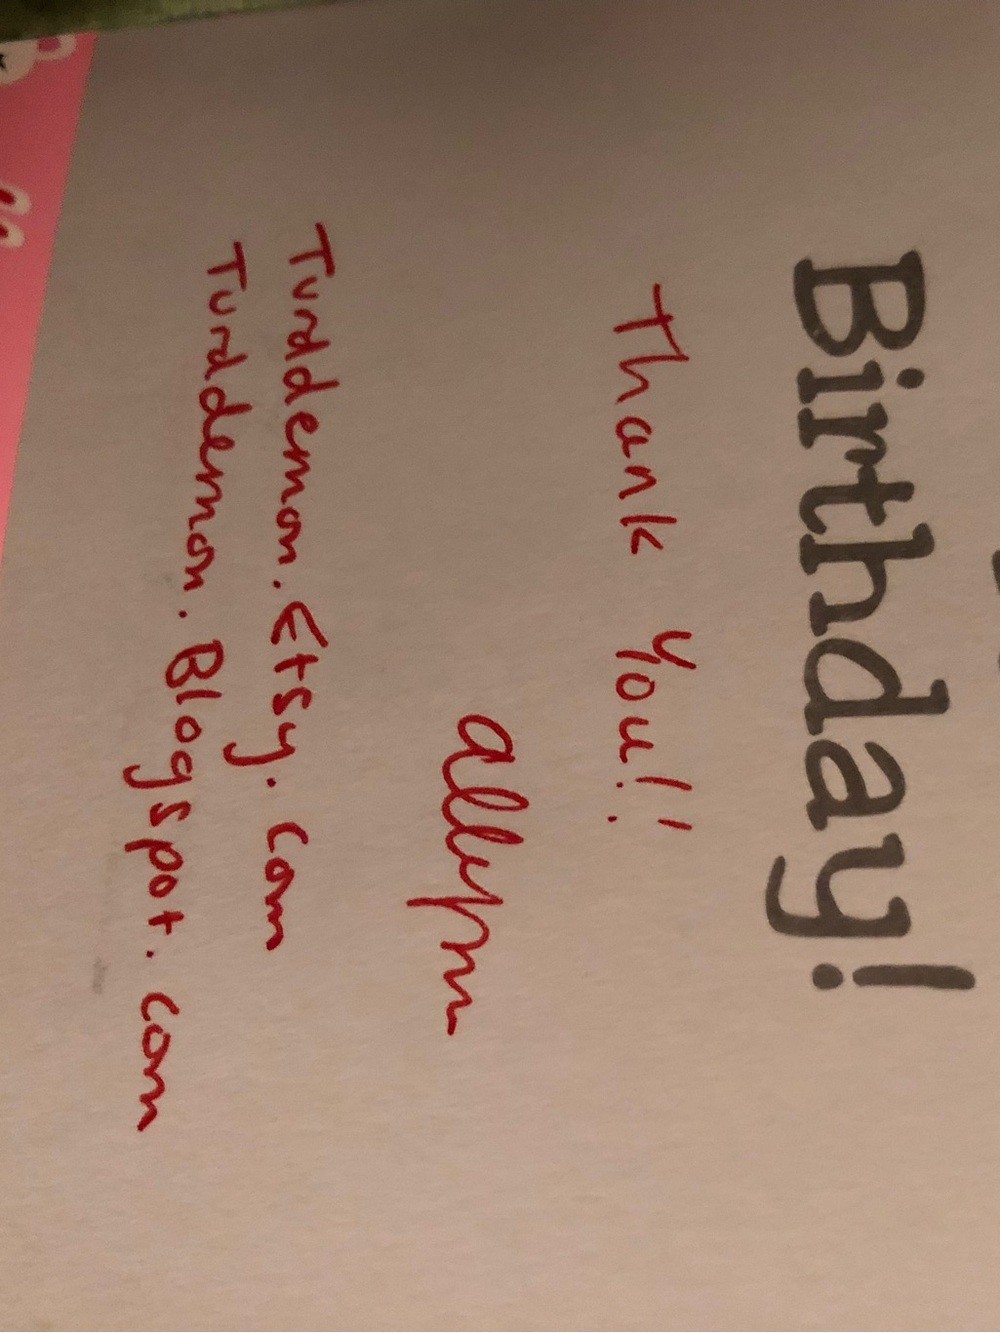 Birthday!
Thank You!!
allyn
Turddemon.Etsy.com
Turddemon.Blogspot.com